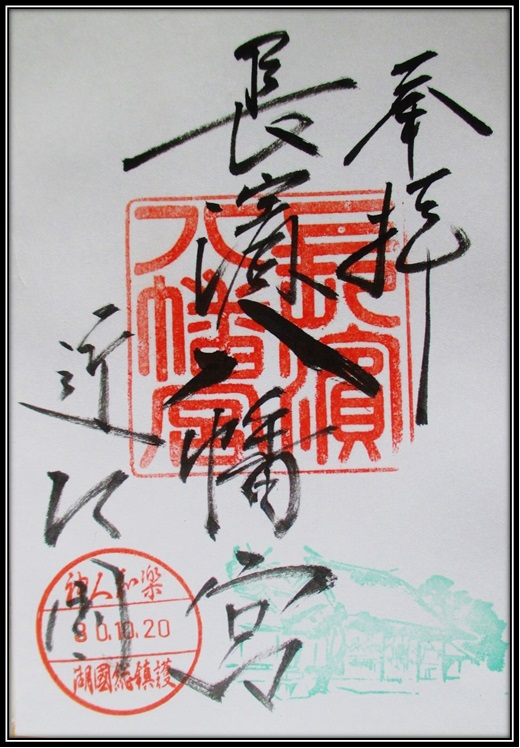 奉拝
長濱八幡宮
近江國
長濱
八幡宮
神人和楽
30.10.20
湖國総鎮護